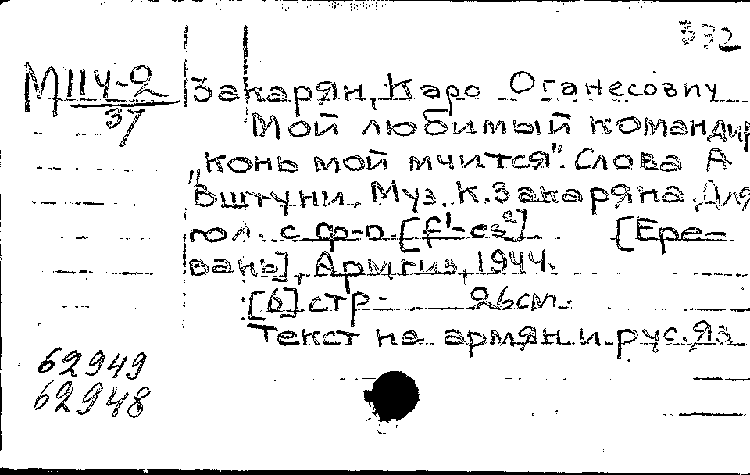 332
М114-2
37
Закарян, Каро Оганесович
Мой любимый командир
„Конь мой мчится". Слова А
Вштуни. Муз. К. Закаряна. Для
гол. с ф-п. [f¹-es²] [Ере-
вань], Армгиз, 1944.
[6] стр. 26см.
Текст на армян. и рус. яз
62949
62948